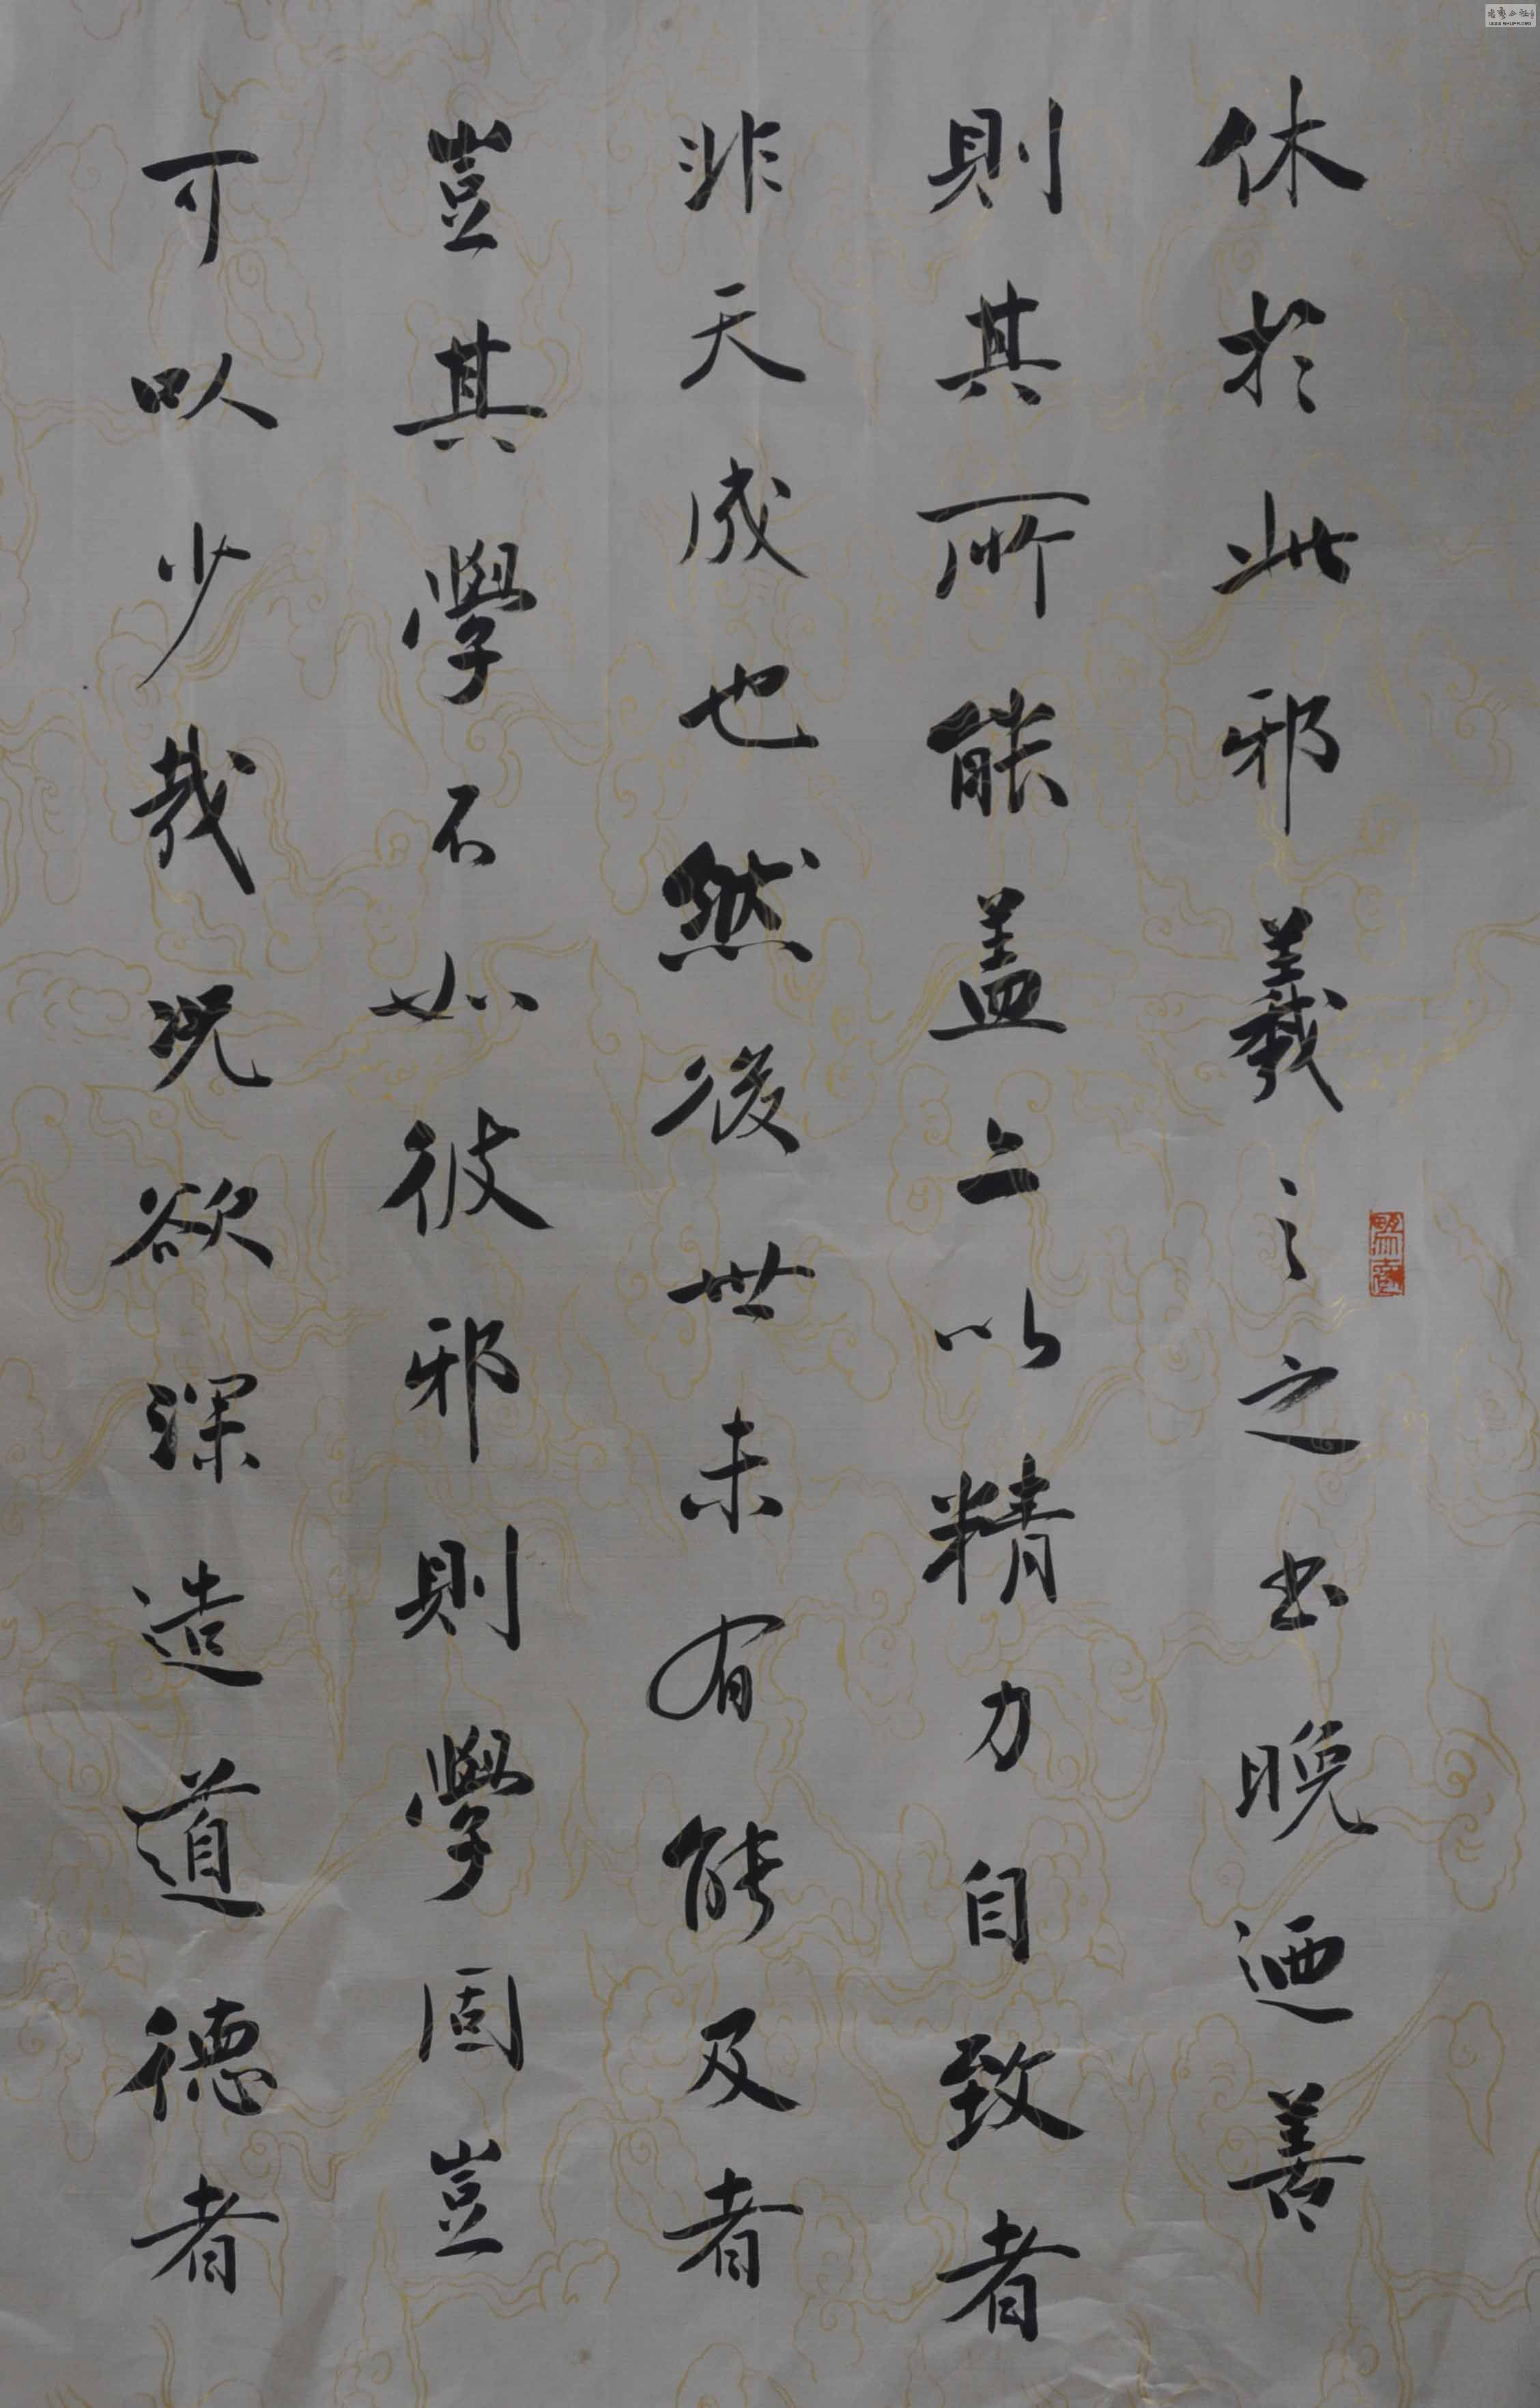 休於此邪羲之之书晚迺善
則其所能盖亦以精力自致者
非天成也然後世未有能及者
豈其學不如彼邪則學固豈
可以少哉况欲深造道德者
WWW.SHUFA.ORG